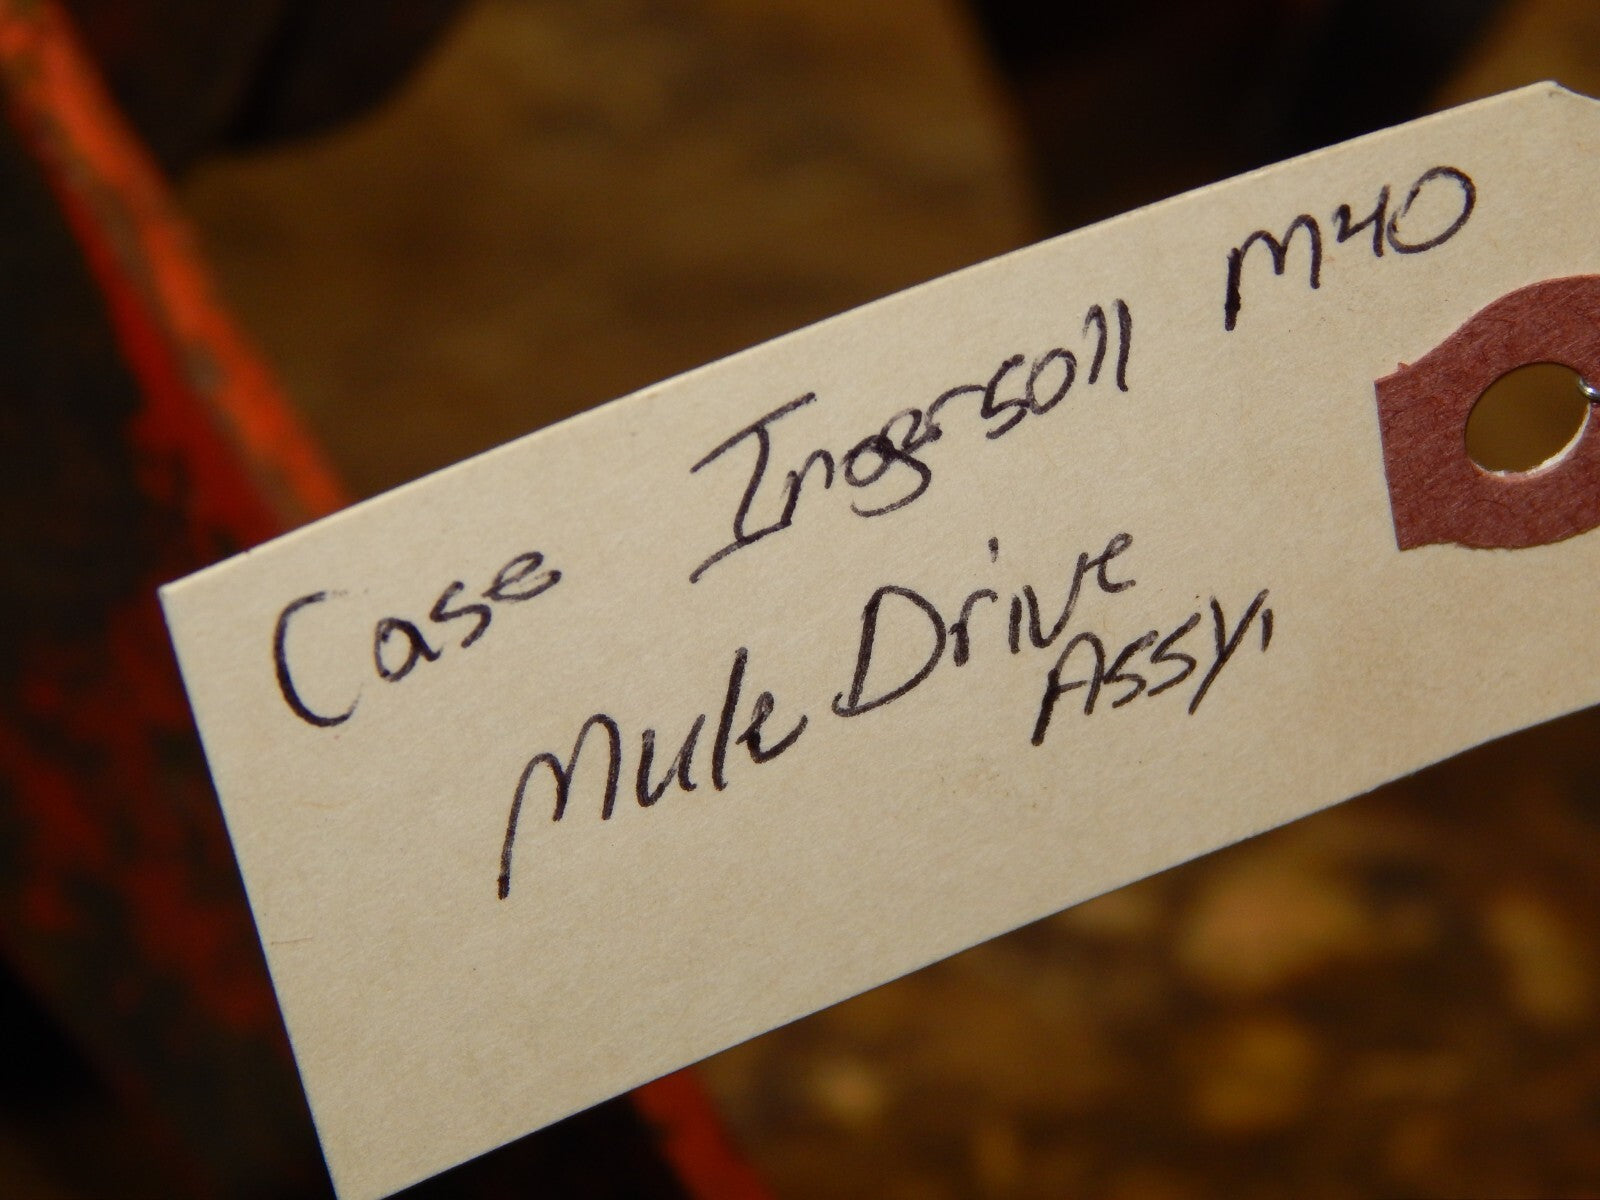 Case Ingersoll M40
Mule Drive
Assy.